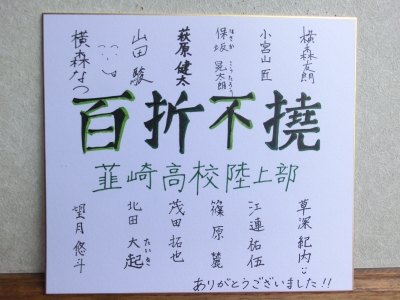 横森友朗
小宮山 匠
保坂 晃太朗
ほさか こうたろう
萩原 健太
山田 駿
横森なつ
百折不撓
韮崎高校陸上部
草深 紀内
江連 祐伍
篠原 麓
茂田 拓也
北田 大起
たいき
望月 悠斗
ありがとうございました!!